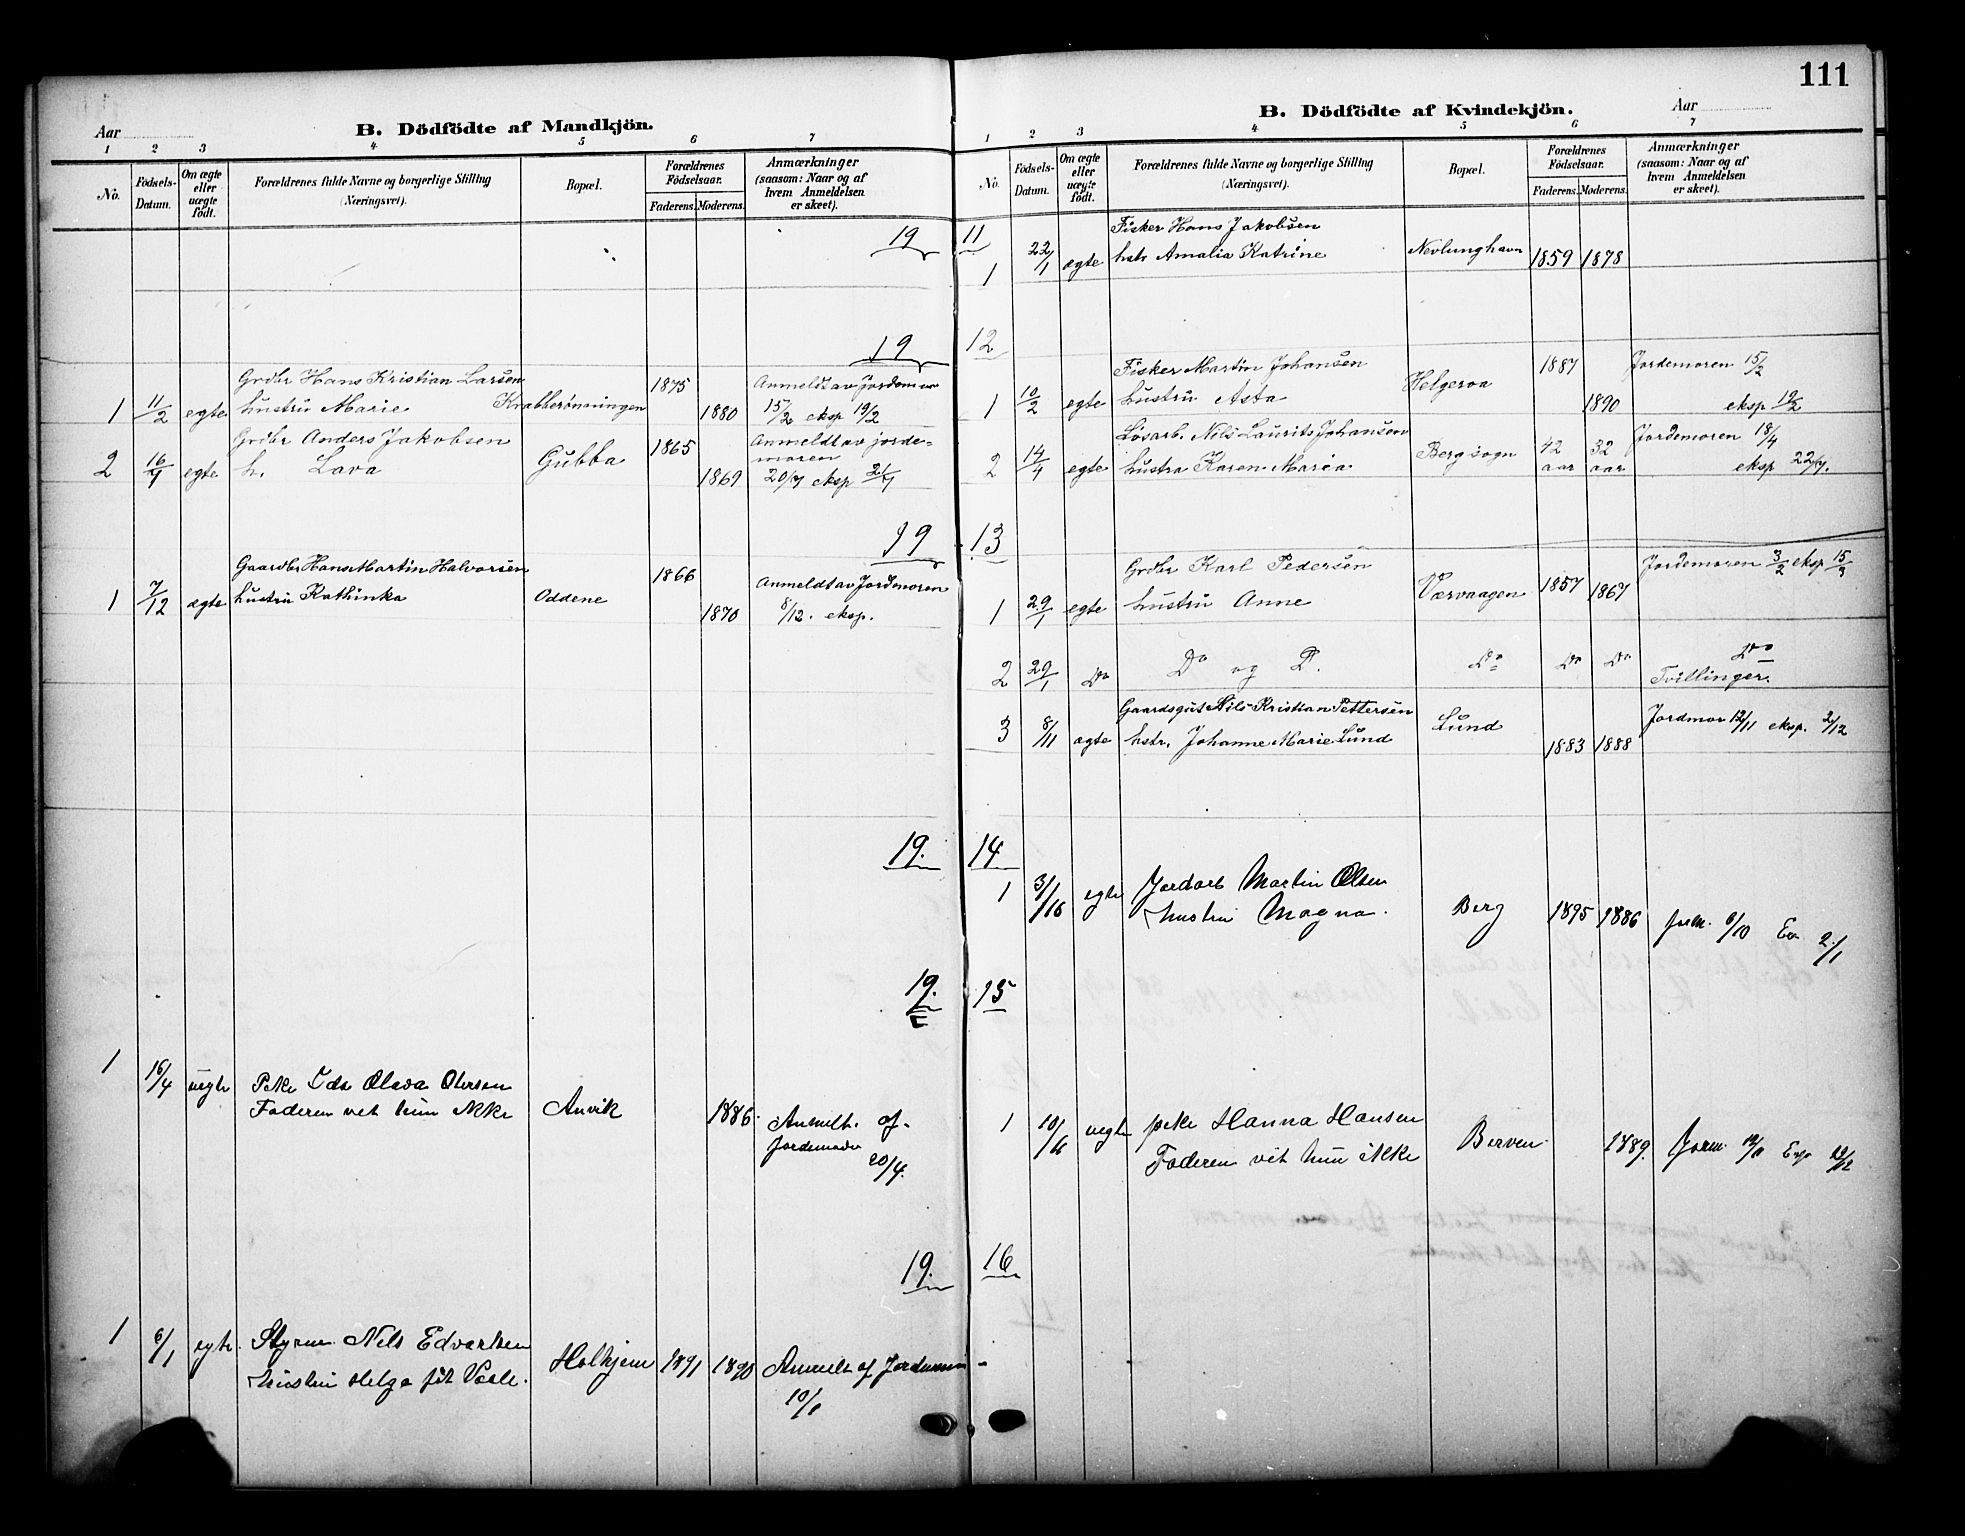 111
Aar
B. Dödfödte af Mandkjön.
1 2 3 4 5 6 7
No.
Födsels-Datum.
Om ægte eller uægte födt.
Forældrenes fulde Navne og borgerlige Stilling (Næringsvei).
Bopæl.
Forældrenes Födselsaar.
Faderens. Moderens.
Anmærkninger (saasom: Naar og af hvem Anmeldelsen er skeet).
19
19
1 11/2 egte Grdbr Hans Kristian Larsen 1875 Anmeldt av Jordemor
hustru Marie Krabberønningen 1880 15/2 eksp 19/2
2 16/4 egte Grdbr Anders Jakobsen Gubba 1865 Anmeldt av jorde-
moren
h. Lava 1869 20/4 eksp 21/4
19
Gaardbr Hans Martin Halvorsen 1866
1 7/12 ægte hustru Kathinka Oddene Anmeldt av Jordmoren
1870 8/12. eksp.
19.
19.
1 16/4 uegte Pike Ida Olava
Faderen vet hun ikke Anvik 1886. Anmeldt af
Jordemoder
20/4.
19.
1 6/1 egte Styrm. Nils Edvardsen
hustru Helga föt Vaale. Holtjem 1891 1890 Anmeldt af Jordemor
10/1
B. Dödfödte af Kvindekjön.
Aar
1 2 3 4 5 6 7
No.
Födsels-Datum.
Om ægte eller uægte födt.
Forældrenes fulde Navne og borgerlige Stilling (Næringsvei).
Bopæl.
Forældrenes Födselsaar.
Faderens. Moderens.
Anmærkninger (saasom: Naar og af hvem Anmeldelsen er skeet).
11
Fisker Hans Jakobsen
1 22/1 ægte hstr Amalia Katrine Nevlunghavn 1859 1878
12
Fisker Martin Johansen 1887 Jordemoren 15/2
1 10/2 egte hustru Asta Helgeroa 1890 eksp 19/2
Løsarb. Nils Laurits Johansen Jordemoren 18/4
2 14/4 egte hustru Karen Maria Berg sogn 42 aar 32 aar eksp 22/4.
13
Grdbr Karl Pedersen Jordemoren 3/2 eksp 15/3
1 29/1 egte hustru Anne Værvaagen 1857 1867
2 29/1 Do Do og D. Do Do Do Do
Tvillinger.
Gaardsgut Nils Kristian Pettersen
3 8/11 ægte hstr. Johanne Marie Lund Lund 1883 1888 Jordmor 12/11 eksp. 2/12
14
1 egte Jordarb Martin Olsen
hustru Magna. Berg 1895 1886 6/10 2/1
15
1 uegte pike Hanna Hansen
Faderen vet hun ikke Berven 1889.
16
-